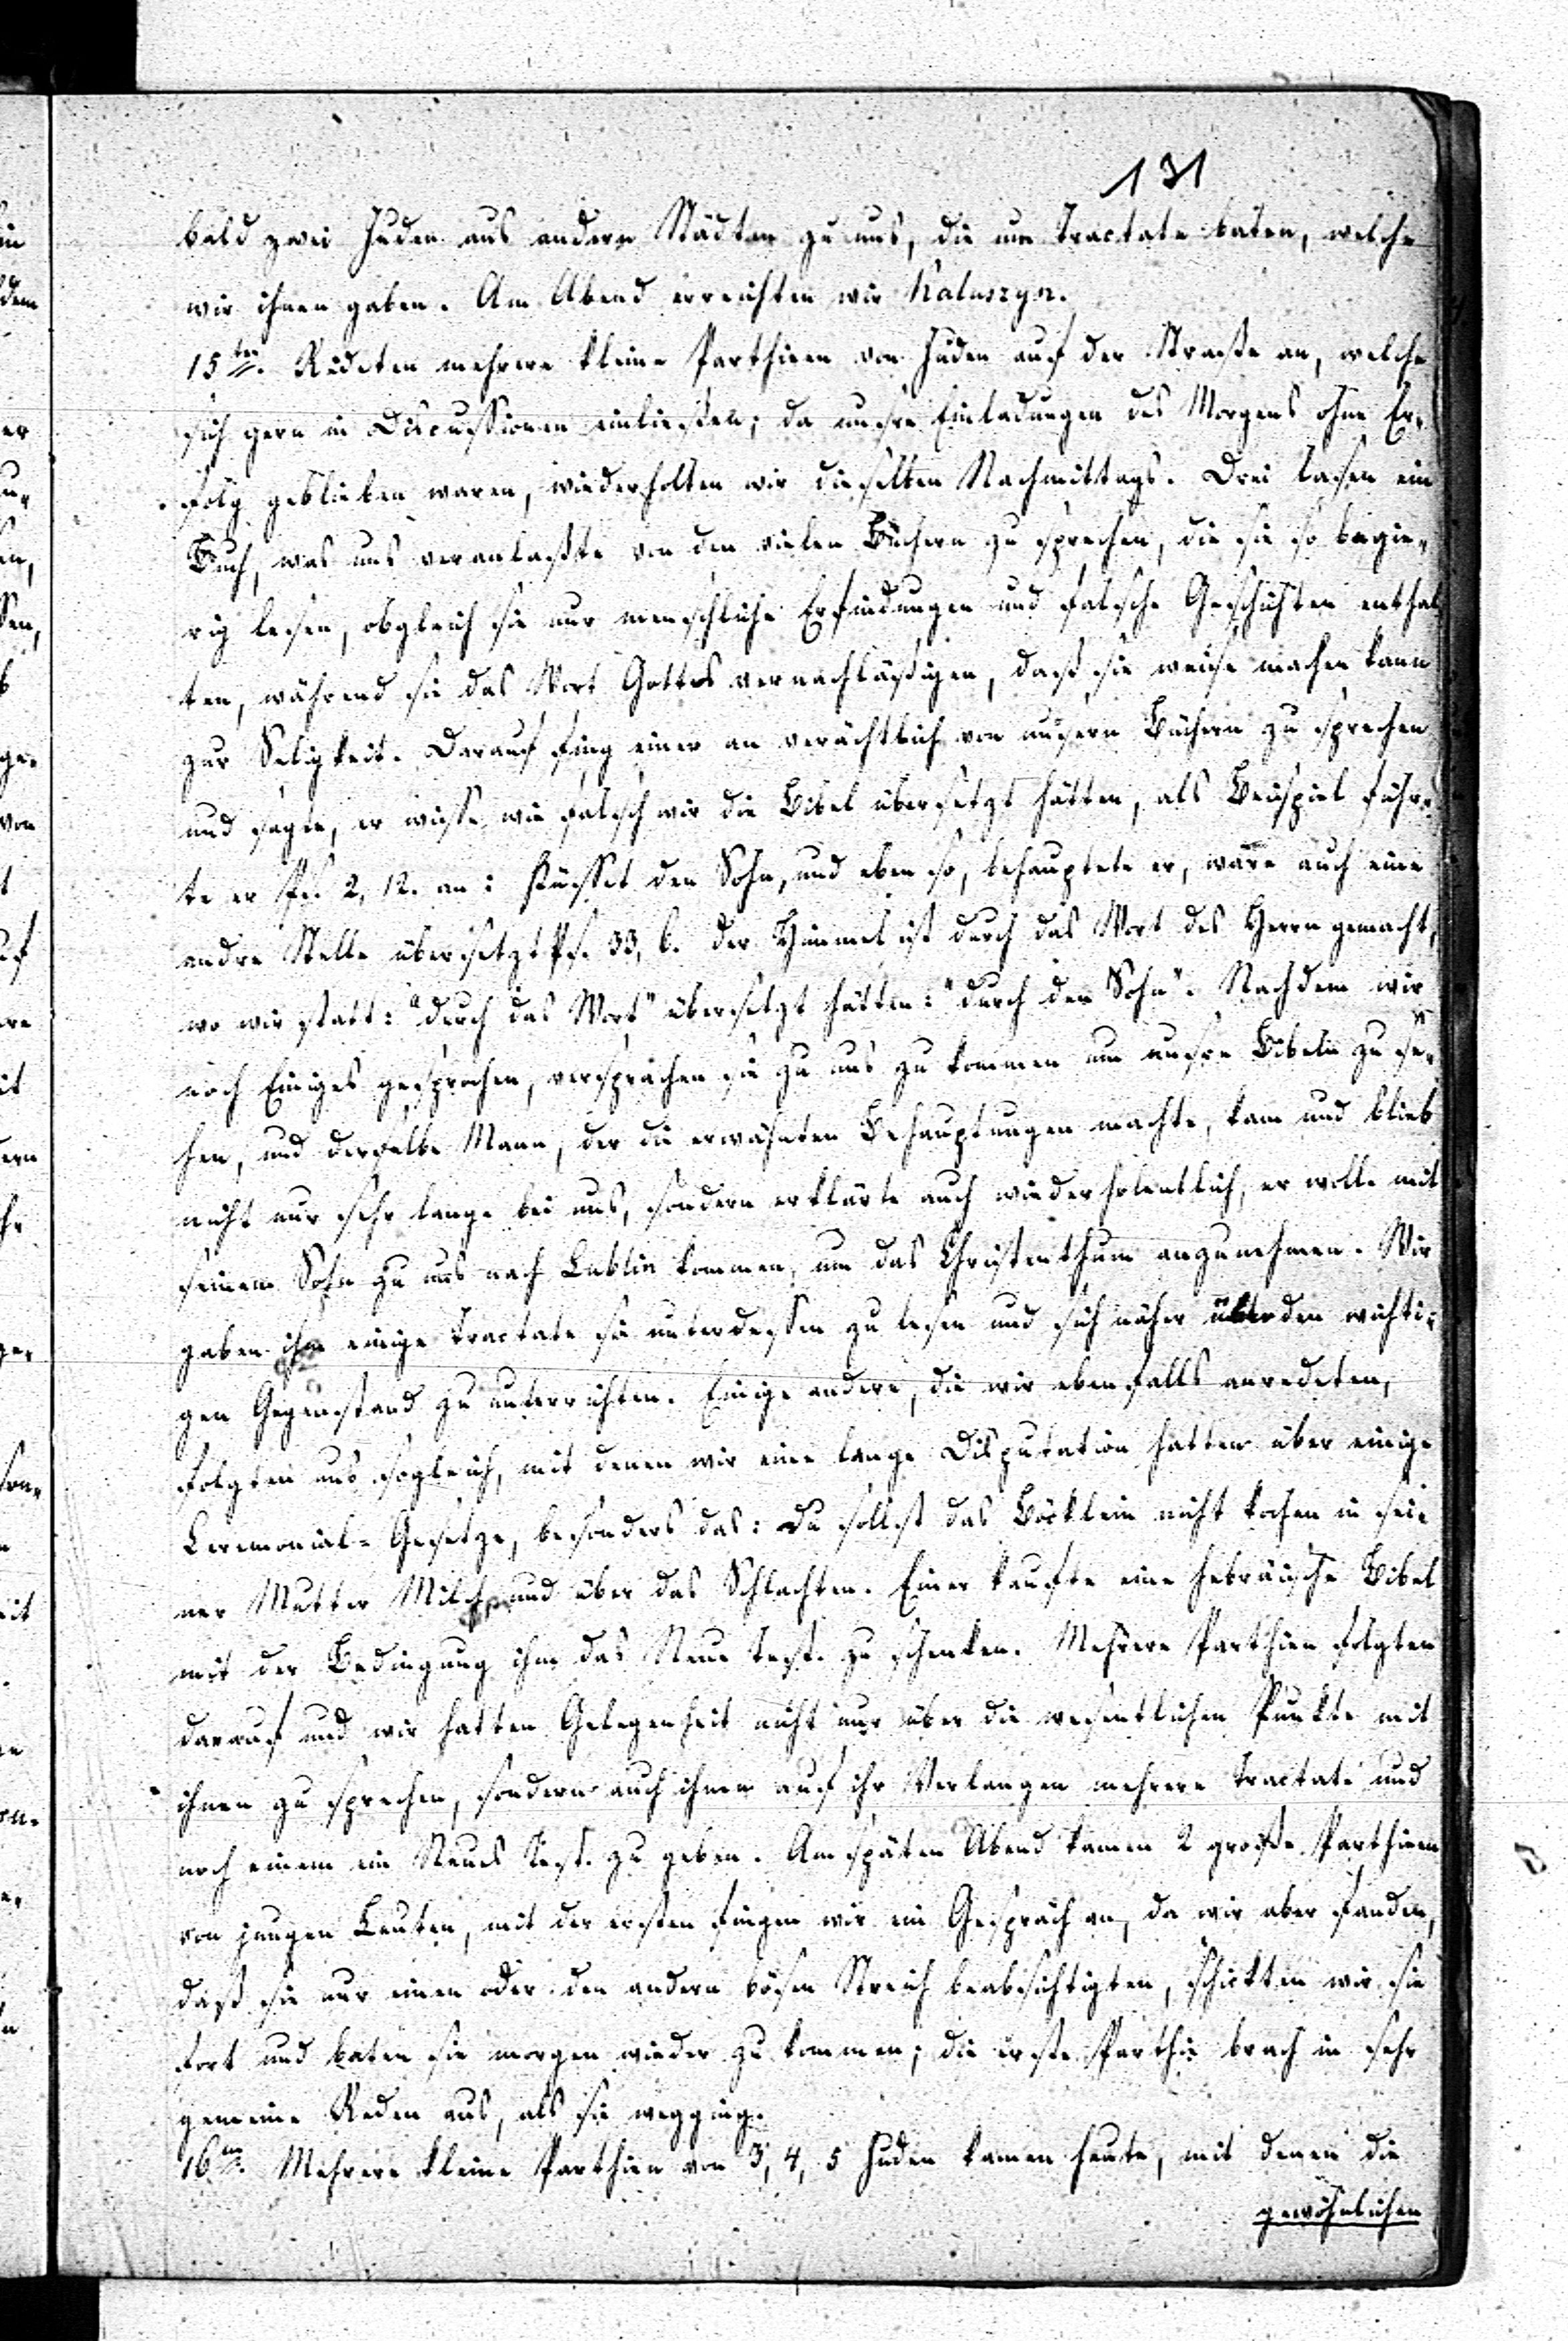 131
bald zwei Juden aus andern Städten zu uns, die um Tractate baten, welche
wir ihnen gaben. Am Abend erreichten wir Kaluszyn.
15ten. Redeten mehrere kleine Parthieen von Juden auf der Straße an, welche
sich gern in Discussionen einließen; da unsre Einladungen des Morgens ohne Er-
folg geblieben waren, wiederholten wir dieselben Nachmittags. Drei lasen ein
Buch, was uns veranlaßte von den vielen Büchern zu sprechen, die sie so begie-
rig lesen, obgleich sie nur menschliche Erfindungen und falsche Geschichten enthal
ten, während sie das Wort Gottes vernachläßigen, daß sie weise machen kann
zur Seligkeit. Darauf fing einer an verächtlich von unsern Büchern zu sprechen
und sagte, er wisse wie falsch wir die Bibel übersetzt hätten, als Beispiel führ-
te er Ps. 2, 12. an: Küsset den Sohn, und eben so, behauptete er, wäre auch eine
andre Stelle übersetzt Ps. 33, 6. der Himmel ist durch das Wort des Herrn gemacht,
wo wir statt: "durch das Wort" übersetzt hätten: "durch den Sohn". Nachdem wir
noch Einiges gesprochen, versprachen sie zu uns zu kommen um unsre Bibeln zu se-
hen, und derselbe Mann, der die erwähnten Behauptungen machte, kam und blieb
nicht nur sehr lange bei uns, sondern erklärte auch wiederholentlich, er wolle mit
seinem Sohn zu uns nach Lublin kommen, um das Christenthum anzunehmen. Wir
gaben ihm einige Tractate sie unterdessen zu lesen und sich näher über den wichti-
gen Gegenstand zu unterrichten. Einige andere, die wir ebenfalls anredeten,
folgten uns sogleich, mit denen wir eine lange Disputation hatten über einige
Ceremonial-Gesetze, besonders das: Du sollst das Böcklein nicht kochen in sei-
ner Mutter Milch und über das Schlachten. Einer kaufte eine hebräische Bibel
mit der Bedingung ihm das Neue Test. zu schenken. Mehrere Parthien folgten
darauf und wir hatten Gelegenheit nicht nur über die wesentlichen Punkte mit
ihnen zu sprechen, sondern auch ihnen auf ihr Verlangen mehrere Tractate und
noch einem ein Neues Test. zu geben. Am späten Abend kamen 2 große Parthieen
von jungen Leuten, mit der ersten fingen wir ein Gespräch an, da wir aber fanden,
daß sie nur einen oder den andern bösen Streich beabsichtigten, schickten wir sie
fort und baten sie morgen wieder zu kommen; die erste Parthie brach in sehr
gemeine Reden aus, als sie wegging.
16ten. Mehrere kleine Parthien von 3, 4, 5 Juden kamen heute, mit denen die
gewöhnlichen